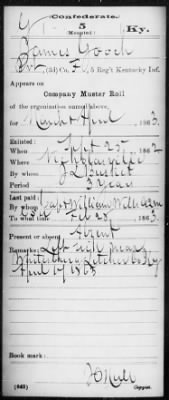 Confederate.
5
(Mounted)
Ky.
James Gooch
Pvt, (3d) Co. F, 5 Reg't Kentucky Inf.
Appears on
Company Muster Roll
of the organization named above,
for March & April, 1863.
Enlisted:
When Sept 25, 1862
Where
By whom
Period 3 years
Last paid:
By whom Capt William William
To what time Feb 28, 1863.
Present or absent Absent
Remarks: Left sick near
Whitesburg Letcher Co Ky
April 17 1863
Book mark:
(642)
Copyist.